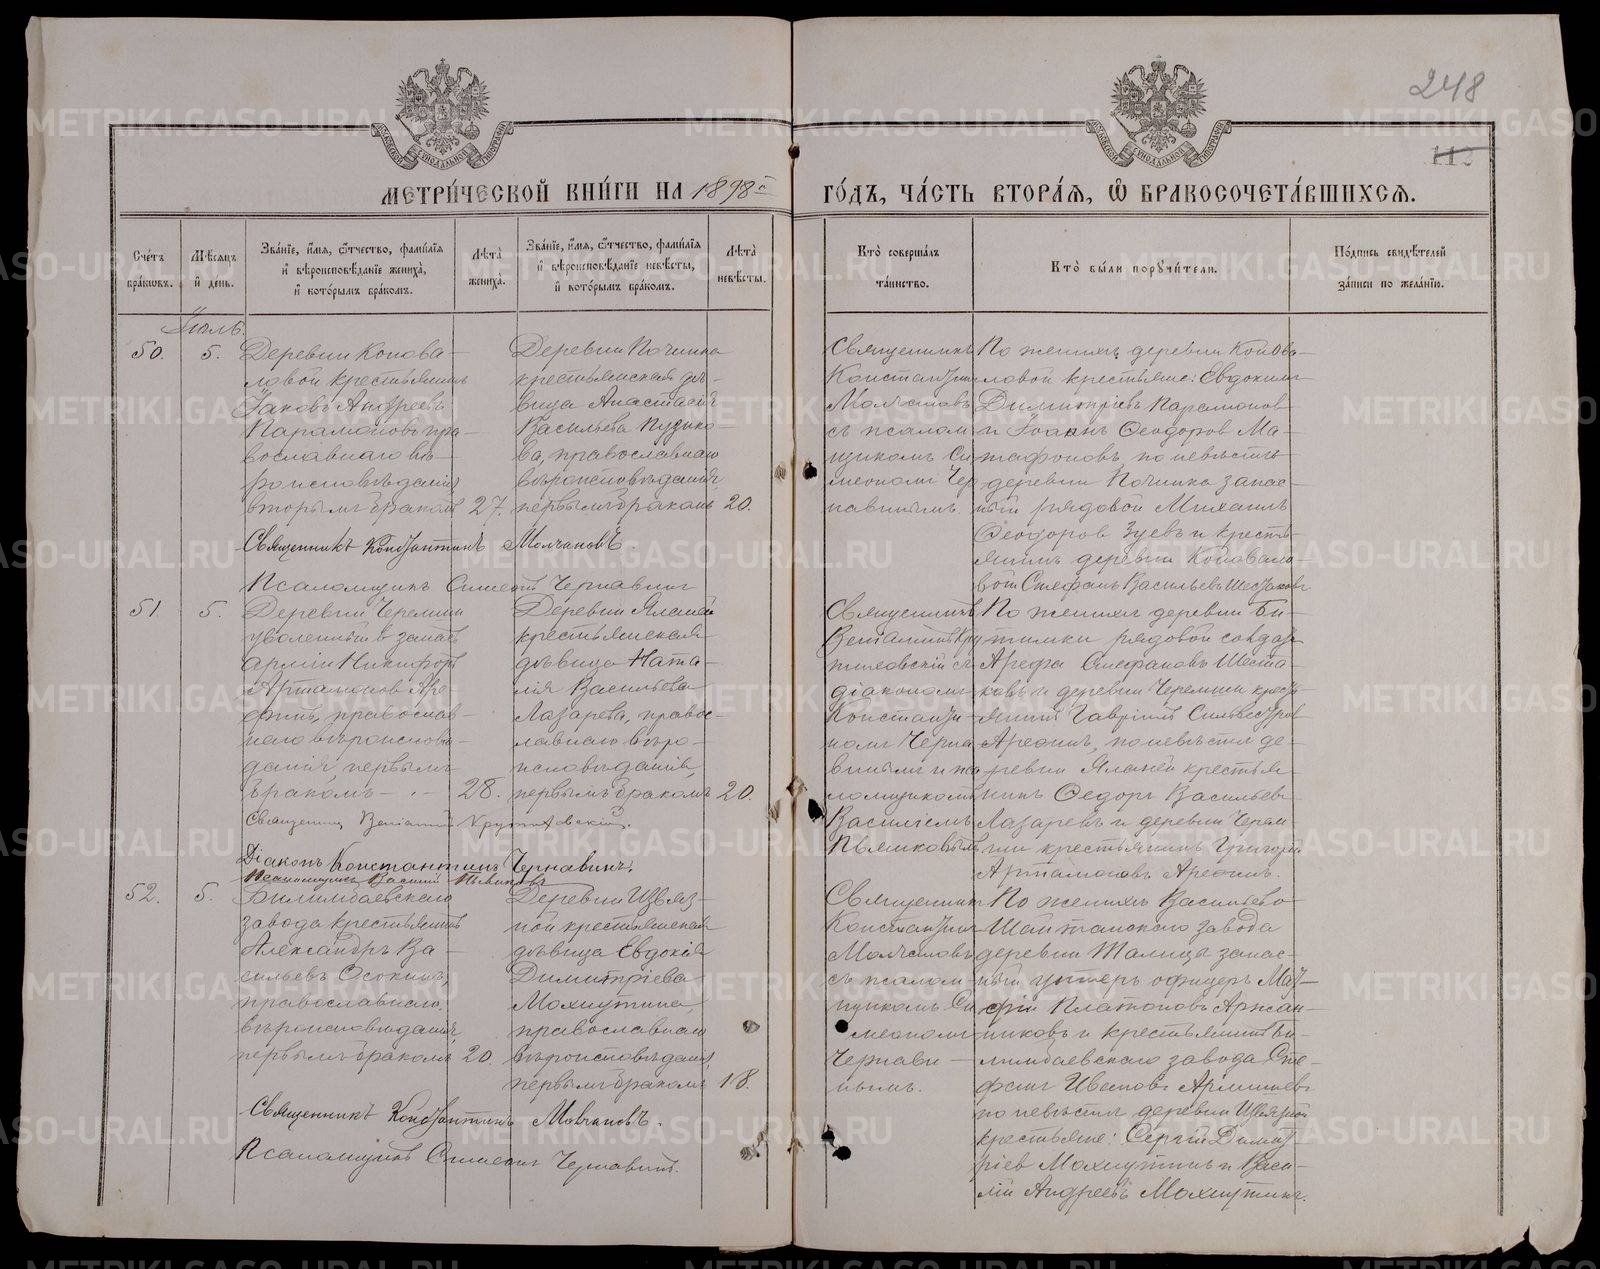 248
МЕТРИ́ЧЕСКОЙ КНИ́ГИ НА 1898й ГО́ДЪ, ЧА́СТЬ ВТОРА́Я, Ѡ БРАКОСОЧЕТА́ВШИХСЯ.
Сче́тъ бра́ковъ.
Мѣ́сяцъ и де́нь.
Зва́нїе, и́мя, ѻ҆́тчество, фами́лїя и҆ вѣроисповѣ́данїе жениха̀, и҆ кото́рымъ бра́комъ.
Лѣта̀ жениха̀.
Зва́нїе, и́мя, ѻ҆́тчество, фами́лїя и҆ вѣроисповѣ́данїе невѣ́сты, и҆ кото́рымъ бра́комъ.
Лѣта̀ невѣ́сты.
Кто̀ соверша́лъ та́инство.
Кто̀ бы́ли поручи́тели.
По́дпись свидѣ́телей за́писи по жела́нїю.
Іюль.
50.
5.
Деревни Конова-
ловой крестьянинъ
Іаковъ Андреевъ
Парамоновъ пра-
вославнаго вѣ-
роисповѣданія
вторымъ бракомъ
27.
Деревни Починка
крестьянская дѣ-
вица Анастасія
Васильева Пузико-
ва, православнаго
вѣроисповѣданія
первымъ бракомъ
20.
Священникъ
Константинъ
Молчановъ
съ псалом
щикомъ Си
меономъ Чер
навинымъ.
По женихѣ деревни Конова-
ловой крестьяне: Евдокимъ
Димитріевъ Парамонов
и Іоаннъ Ѳеодоров Ма-
матафоновъ, по невѣстѣ
деревни Починка запас-
ный рядовой Михаилъ
Ѳеодоров Зуевъ и кресть-
янинъ деревни Коновало-
вой Стефанъ Васильевъ Шестаковъ
Священникъ Константинъ Молчановъ.
Псаломщикъ Симеонъ Чернавинъ
51.
5.
Деревни Черемши
уволенный в запасъ
арміи Никифоръ
Артамонов Аре-
финъ, православ-
наго вѣроисповѣ-
данія, первымъ
бракомъ
28.
Деревни Яланей
крестьянская
дѣвица Ната-
лія Васильева
Лазарева, правос-
лавнаго вѣро-
исповѣданія,
первымъ бракомъ
20.
Священникъ
Веніаминъ
съ
діакономъ
Константи-
номъ Черна
винымъ и пса
ломщикомъ
Василіемъ
Пьянковымъ
По женихѣ деревни Би-
тимки рядовой солдатъ
Арефа Стефановъ Шеста-
ковъ и деревни Черемши кресть-
янинъ Гавріилъ Сильвестров
Арефинъ, по невѣстѣ де-
ревни Яланей крестья-
нинъ Ѳедоръ Васильевъ
Лазаревъ и деревни Черем-
ши крестьянинъ Григорій
Артамоновъ Арефинъ.
Священникъ Веніаминъ
Діаконъ Константинъ Чернавинъ.
Псаломщикъ Василій Пьянковъ
52.
5.
Билимбаевскаго
завода крестьянинъ
Александръ Ва-
сильевъ Осокинъ,
православнаго
вѣроисповѣданія,
первымъ бракомъ
20.
Деревни Извяз-
ной крестьянская
дѣвица Евдокія
Димитріева
Махнутина,
православнаго
вѣроисповѣданія,
первымъ бракомъ
18.
Священникъ
Константинъ
Молчановъ
съ псалом
щикомъ Си
меономъ
Чернави-
нымъ.
По женихѣ Васильево-
Шайтанскаго завода
деревни Талицы запас-
ный унтеръ офицеръ Мат-
фій Платоновъ Аржан-
никовъ и крестьянинъ Би-
лимбаевскаго завода Сте-
фанъ Ивановъ
по невѣстѣ деревни Извязной
крестьяне: Сергій Димит
ріев Махнутинъ и Васи-
лій Андреевъ Махнутинъ.
Священникъ Константинъ Молчановъ.
Псаломщикъ Симеонъ Чернавинъ.
METRIKI.GASO-URAL.RU